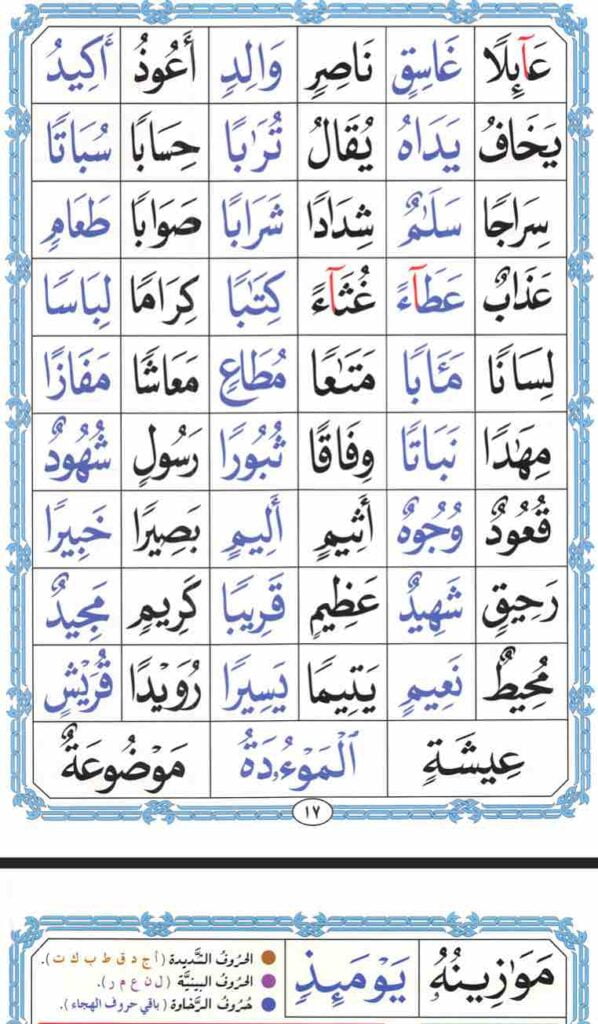 عَآئِلًا غَاسِقٍ نَاصِرٍ وَالِدٍ أَعُوذُ أَكِيدُ
يَخَافُ يَدَاهُ يُقَالُ تُرَٰبًا حِسَابًا سُبَاتًا
سِرَاجًا سَلَٰمٌ شِدَادًا شَرَابًا صَوَابًا طَعَامِ
عَذَابٌ عَطَآءً غُثَآءً كِتَٰبًا كِرَامًا لِبَاسًا
لِسَانًا مَـَٔابًا مَتَٰعًا مُطَاعٍ مَعَاشًا مَفَازًا
مِهَٰدًا نَبَاتًا وِفَاقًا ثُبُورًا رَسُولٍ شُهُودٌ
قُعُودٌ وُجُوهٌ أَثِيمٍ أَلِيمٍ بَصِيرًا خَبِيرًا
رَحِيقٍ شَهِيدٌ عَظِيمٍ قَرِيبًا كَرِيمٍ مَجِيدٌ
مُحِيطٌ نَعِيمٍ يَتِيمًا يَسِيرًا رُوَيْدًا قُرَيْشٍ
عِيشَةٍ الْمَوْءُۥدَةُ مَوْضُوعَةٌ
١٧
مَوَٰزِينُهُۥ يَوْمَئِذٍ
الحُروفُ الشَّديدة (أ ج د ق ط ب ك ت).
الحُروفُ البينيَّة (ل ن ع م ر).
حُروفُ الرَّخاوة (باقي حروف الهجاء).